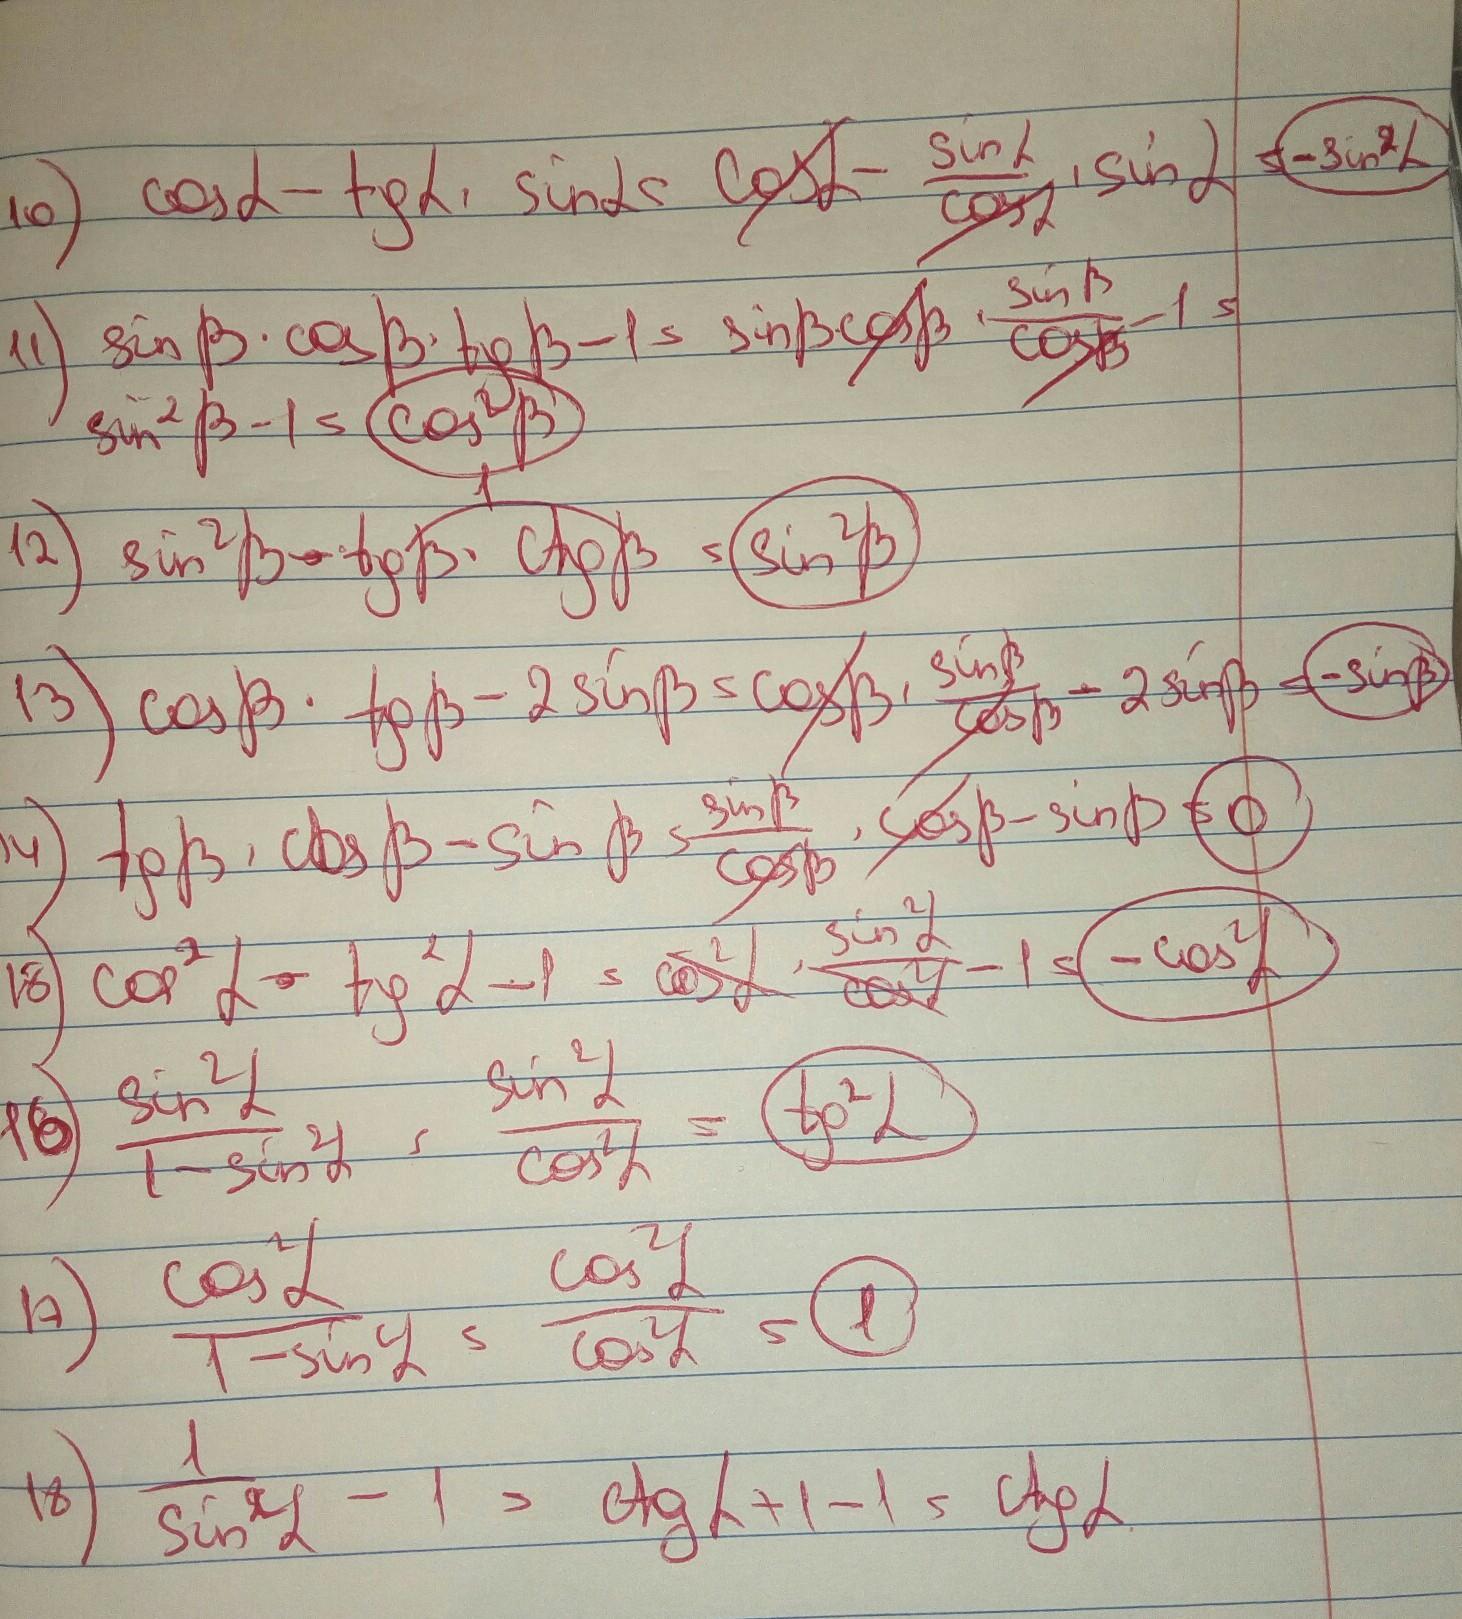 10) cosα - tgα · sinα = cosα - sinα/cosα · sinα = -sin²α
11) sinβ · cosβ · tgβ - 1 = sinβ cosβ · sinβ/cosβ - 1 =
sin²β - 1 = cos²β
1
12) sin²β - tgβ · ctgβ = sin²β
13) cosβ · tgβ - 2sinβ = cosβ · sinβ/cosβ - 2sinβ = -sinβ
14) tgβ · cosβ - sinβ = sinβ/cosβ · cosβ - sinβ = 0
15) cos²α · tg²α - 1 = cos²α · sin²α/cos²α - 1 = -cos²α
16) sin²α/1-sin²α = sin²α/cos²α = tg²α
17) cos²α/1-sin²α = cos²α/cos²α = 1
18) 1/sin²α - 1 = ctgα + 1 - 1 = ctgα